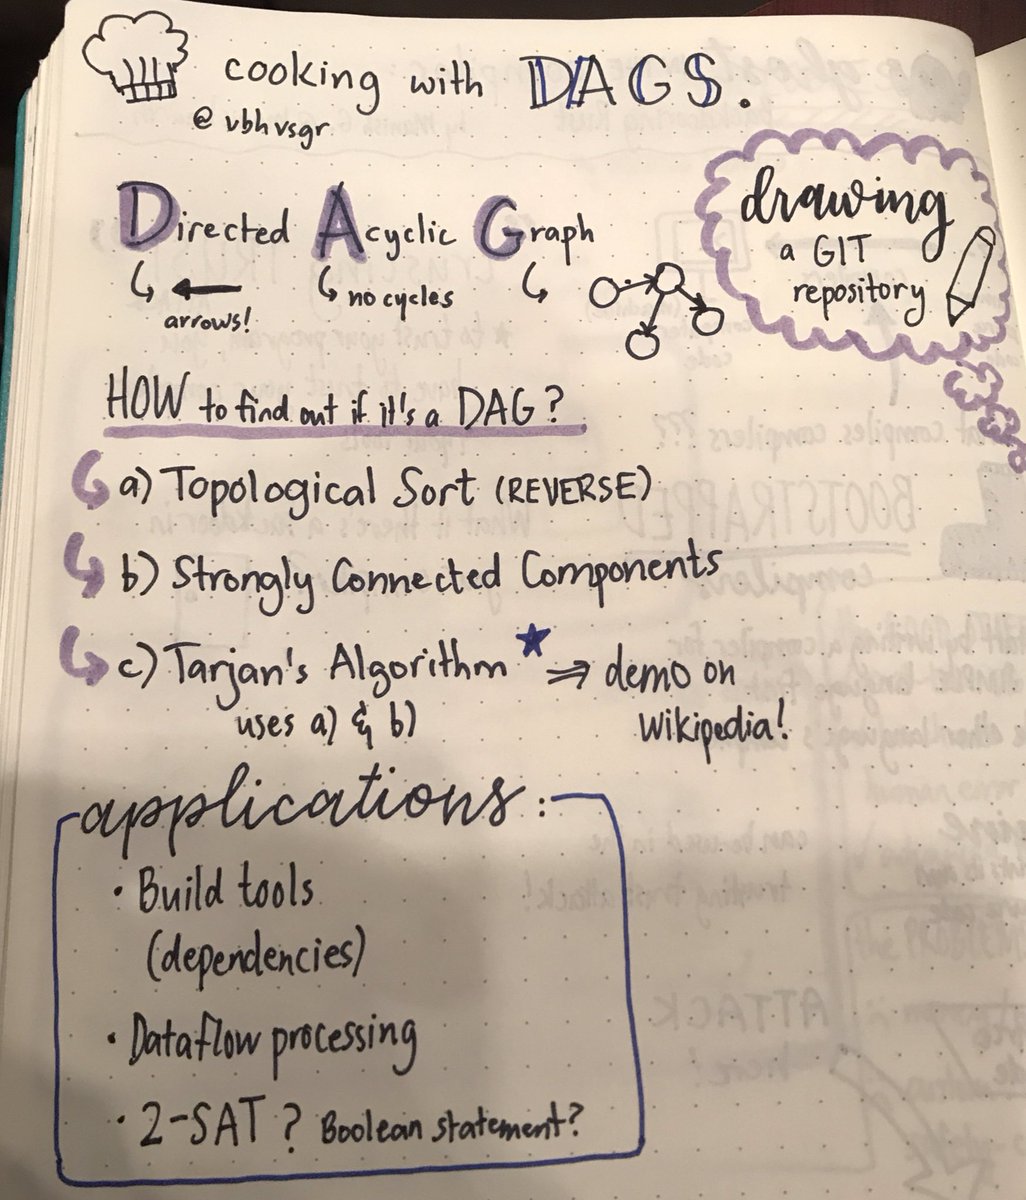 cooking with DAGS.
@vbhvsgr
drawing
a GIT
repository
Directed Acyclic Graph
arrows!
no cycles
HOW to find out if it's a DAG?
a) Topological Sort (REVERSE)
b) Strongly Connected Components
c) Tarjan's Algorithm ★ ⇒ demo on
uses a) & b)
Wikipedia!
applications:
· Build tools
(dependencies)
· Dataflow processing
· 2-SAT? Boolean statement?